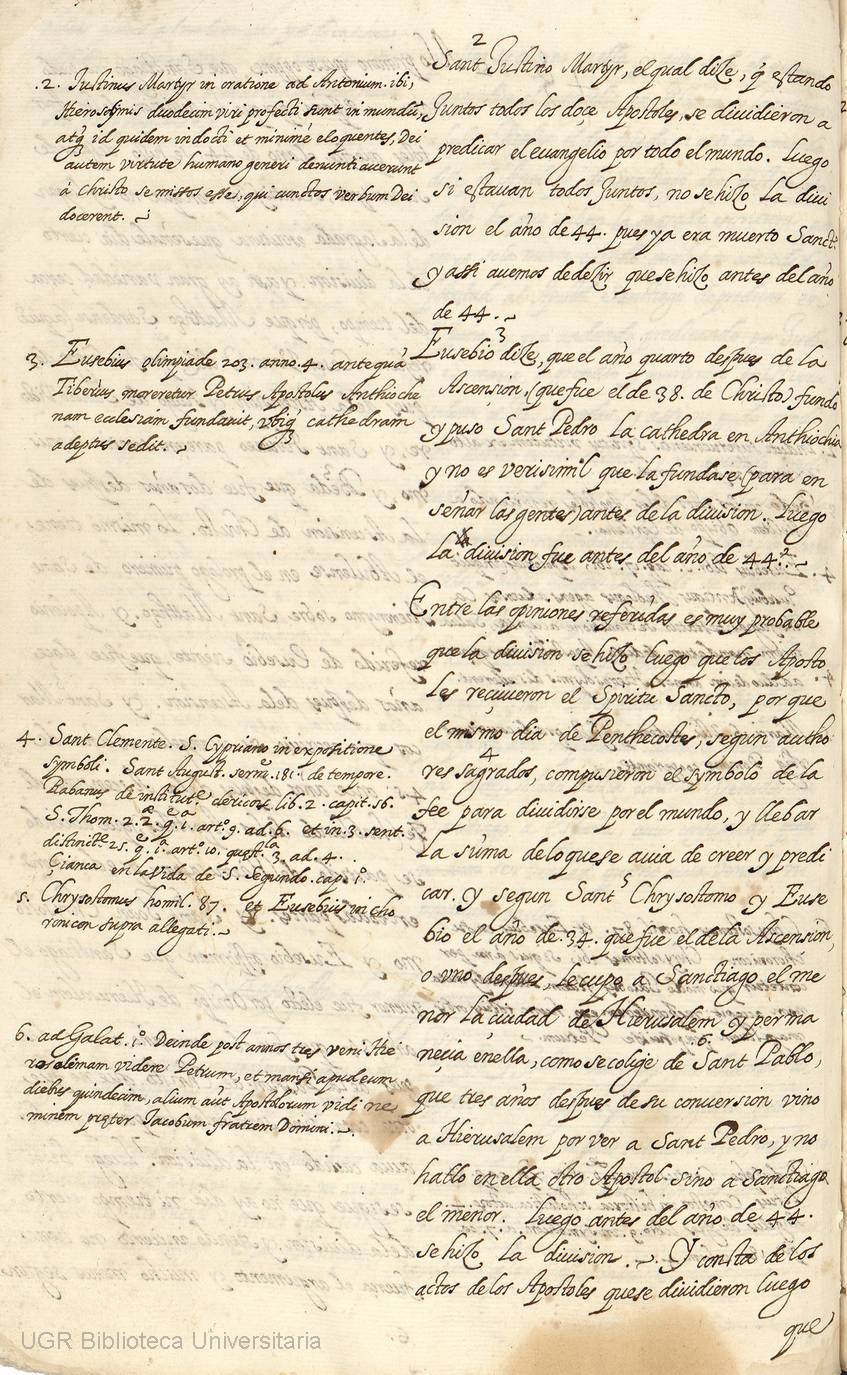 2
Sant Justino Martyr, el qual dize, q̃ estando
Juntos todos los doçe Apostoles, se diuidieron a
predicar el euangelio por todo el mundo. Luego
si estauan todos Juntos, no se hizo la diui
sion el año de 44. pues ya era muerto Sanct.
y assi auemos de dezir que se hizo antes del año
de 44.
3
Eusebio dize, que el año quarto despues de la
Ascension, (que fue el de 38. de Christo) fundo
y puso Sant Pedro la cathedra en Anthiochia
y no es verisimil que la fundase (para en
señar las gentes) antes de la diuision. Luego
la diuision fue antes del año de 44.
Entre las opiniones referidas es muy probable
que la diuision se hizo luego que los Aposto
les reçiuieron el Spiritu Sancto, por que
el mismo dia de Penthecostes, segun autho
4
res sagrados, compusieron el symbolo de la
fee para diuidirse por el mundo, y llebar
la suma de lo que se auia de creer y predi
car. y segun Sant 5 Chrysostomo y Euse
bio el año de .34. que fue el de la Ascension,
o vno despues, le cupo a Sanctiago el me
nor la çiudad de Hierusalem y perma
neçia en ella, como se colige de 6. Sant Pablo,
que tres años despues de su conuersion vino
a Hierusalem por ver a Sant Pedro, y no
hallo en ella otro Apostol sino a Sanctiago
el menor. Luego antes del año de 44.
se hizo la diuision. Y consta de los
actos de los Apostoles que se diuidieron luego
que
.2. Justinus Martyr in oratione ad Antonium. ibi,
Hierosolimis duodecim viri profecti sunt in mundũ,
atq̃ id quidem indocti et minimé eloquentes, Dei
autem virtute humano generi denuntiauerunt
à Christo se missos esse, qui cunctos verbum Dei
docerent.
3. Eusebius olimpiade 203. anno. 4. antequã
Tiberius moreretur Petrus Apostolus Anthioche
nam ecclesiam fundauit, vbiq̃ cathedram
adeptus sedit.
4. Sant Clemente. S. Cypriano in expositione
symboli. Sant August. serm. 181. de tempore.
Rabanus de institut.e clericor. lib. 2. capit. 56.
S. Thom. 2. 2.ae q.e 1.a art.o 9. ad. 6. et in. 3. sent.
distinct.e 25. q.e 1.a art.o 10. quest.la 3. ad. 4.
Çianca en la vida de S. Segundo. cap. 1.o
5. Chrysostomus homil. 87. et Eusebius in cho
ronicon supra allegati.
6. ad Galat. 1.o Deinde post annos tres veni Hie
rosolimam videre Petrum, et mansi apud eum
diebus quindecim, alium aũt Apostolorum vidi ne
minem pręter Jacobum fratrem Domini.
UGR Biblioteca Universitaria